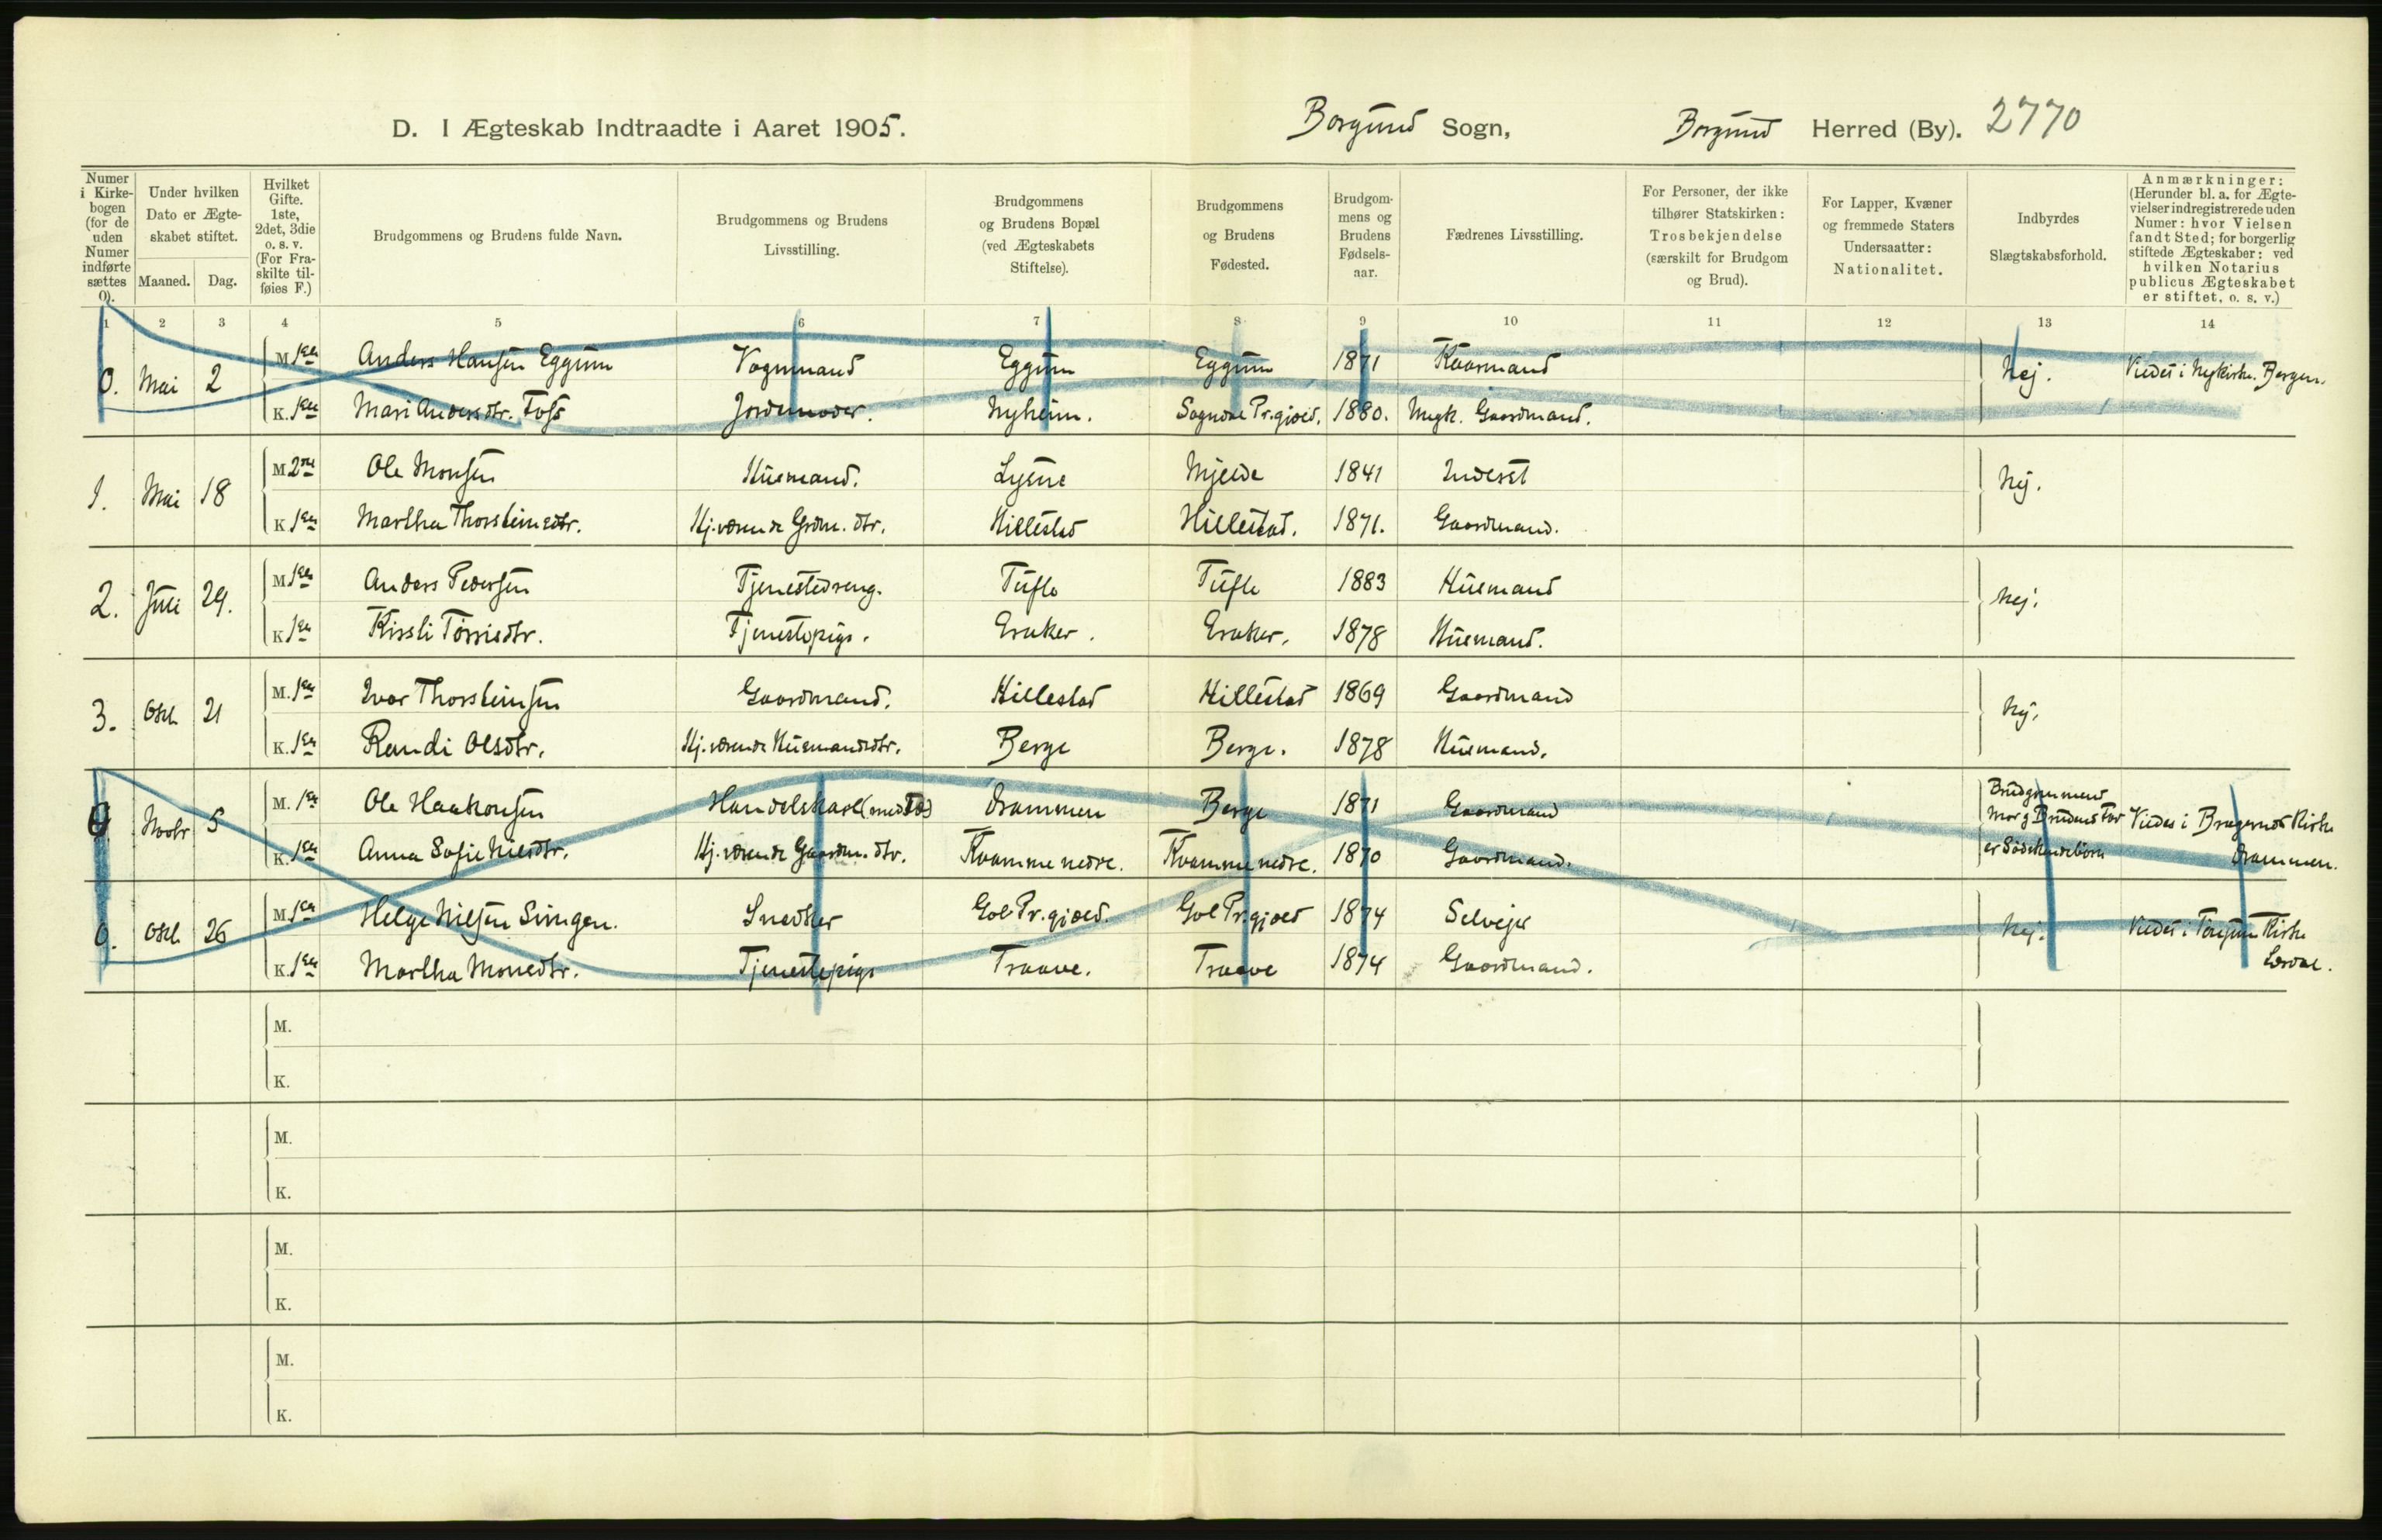 D. I Ægteskab Indtraadte i Aaret 1905. Borgund Sogn, Borgund Herred (By). 2770
Numer i Kirkebogen (for de uden Numer indførte sættes 0).
Under hvilken Dato er Ægteskabet stiftet.
Maaned. Dag.
Hvilket Gifte. 1ste, 2det, 3die o. s. v. (For Fraskilte tilføies F.)
Brudgommens og Brudens fulde Navn.
Brudgommens og Brudens Livsstilling.
Brudgommens og Brudens Bopæl (ved Ægteskabets Stiftelse).
Brudgommens og Brudens Fødested.
Brudgommens og Brudens Fødselsaar.
Fædrenes Livsstilling.
For Personer, der ikke tilhører Statskirken: Trosbekjendelse (særskilt for Brudgom og Brud).
For Lapper, Kvæner og fremmede Staters Undersaatter: Nationalitet.
Indbyrdes Slægtskabsforhold.
Anmærkninger: (Herunder bl. a. for Ægtevielser indregistrerede uden Numer: hvor Vielsen fandt Sted; for borgerlig stiftede Ægteskaber: ved hvilken Notarius publicus Ægteskabet er stiftet, o. s. v.)
1 2 3 4 5 6 7 8 9 10 11 12 13 14
0. Mai 2 M 1ste Anders Hansen Eggum Vognmand Eggum Eggum 1871 Nej. Viedes i Nykirke. Bergen.
K. 1ste Mari Andersdtr. Foss Jordemoder. Nyheim. Sogndal Pr.gjæld. 1880. Gaardmand.
1. Mai 18 M 2det Ole Monsen Husmand. Lysne Mjelde 1841 Inderst Nej.
K 1ste Martha Thorsteinsdtr. Hj.værende Grdm. dtr. Hillestad Hillestad. 1871. Gaardmand.
2. Juli 29. M 1ste Anders Pedersen Tjenestedreng. Tufte Tufte 1883 Husmand Nej.
K 1ste Kirsti Torrisdtr. Tjenestepige. Eraker. Eraker. 1878 Husmand.
3. Okt. 21 M. 1ste Ivar Thorsteinsen Gaardmand. Hillestad Hillestad 1869 Gaardmand Nej.
K. 1ste Randi Olsdtr. Hj.værende Husmandsdtr. Berge Berge. 1878 Husmand.
0 Novbr 5 M. 1ste Ole Haakonsen Handelskarl Drammen Berge 1871 Gaardmand Brudgommens Mor og Brudens Far er Södskendebörn Viedes i Bragernes Kirke Drammen.
K. 1ste Anna Sofie Nilsdtr. Hj.værende Gaardm. dtr. Kvamme nedre. Kvamme nedre. 1870 Gaardmand.
0. Okt. 26 M. 1ste Helge Nilsen Snedker Gol Pr.gjæld. Gol Pr.gjæld 1874 Selvejer Nej. Viedes i Tönjum Kirke Lærdal.
K. 1ste Martha Monsdtr. Tjenestepige Traave. Traave 1874 Gaardmand.
M.
K.
M.
K.
M.
K.
M.
K.